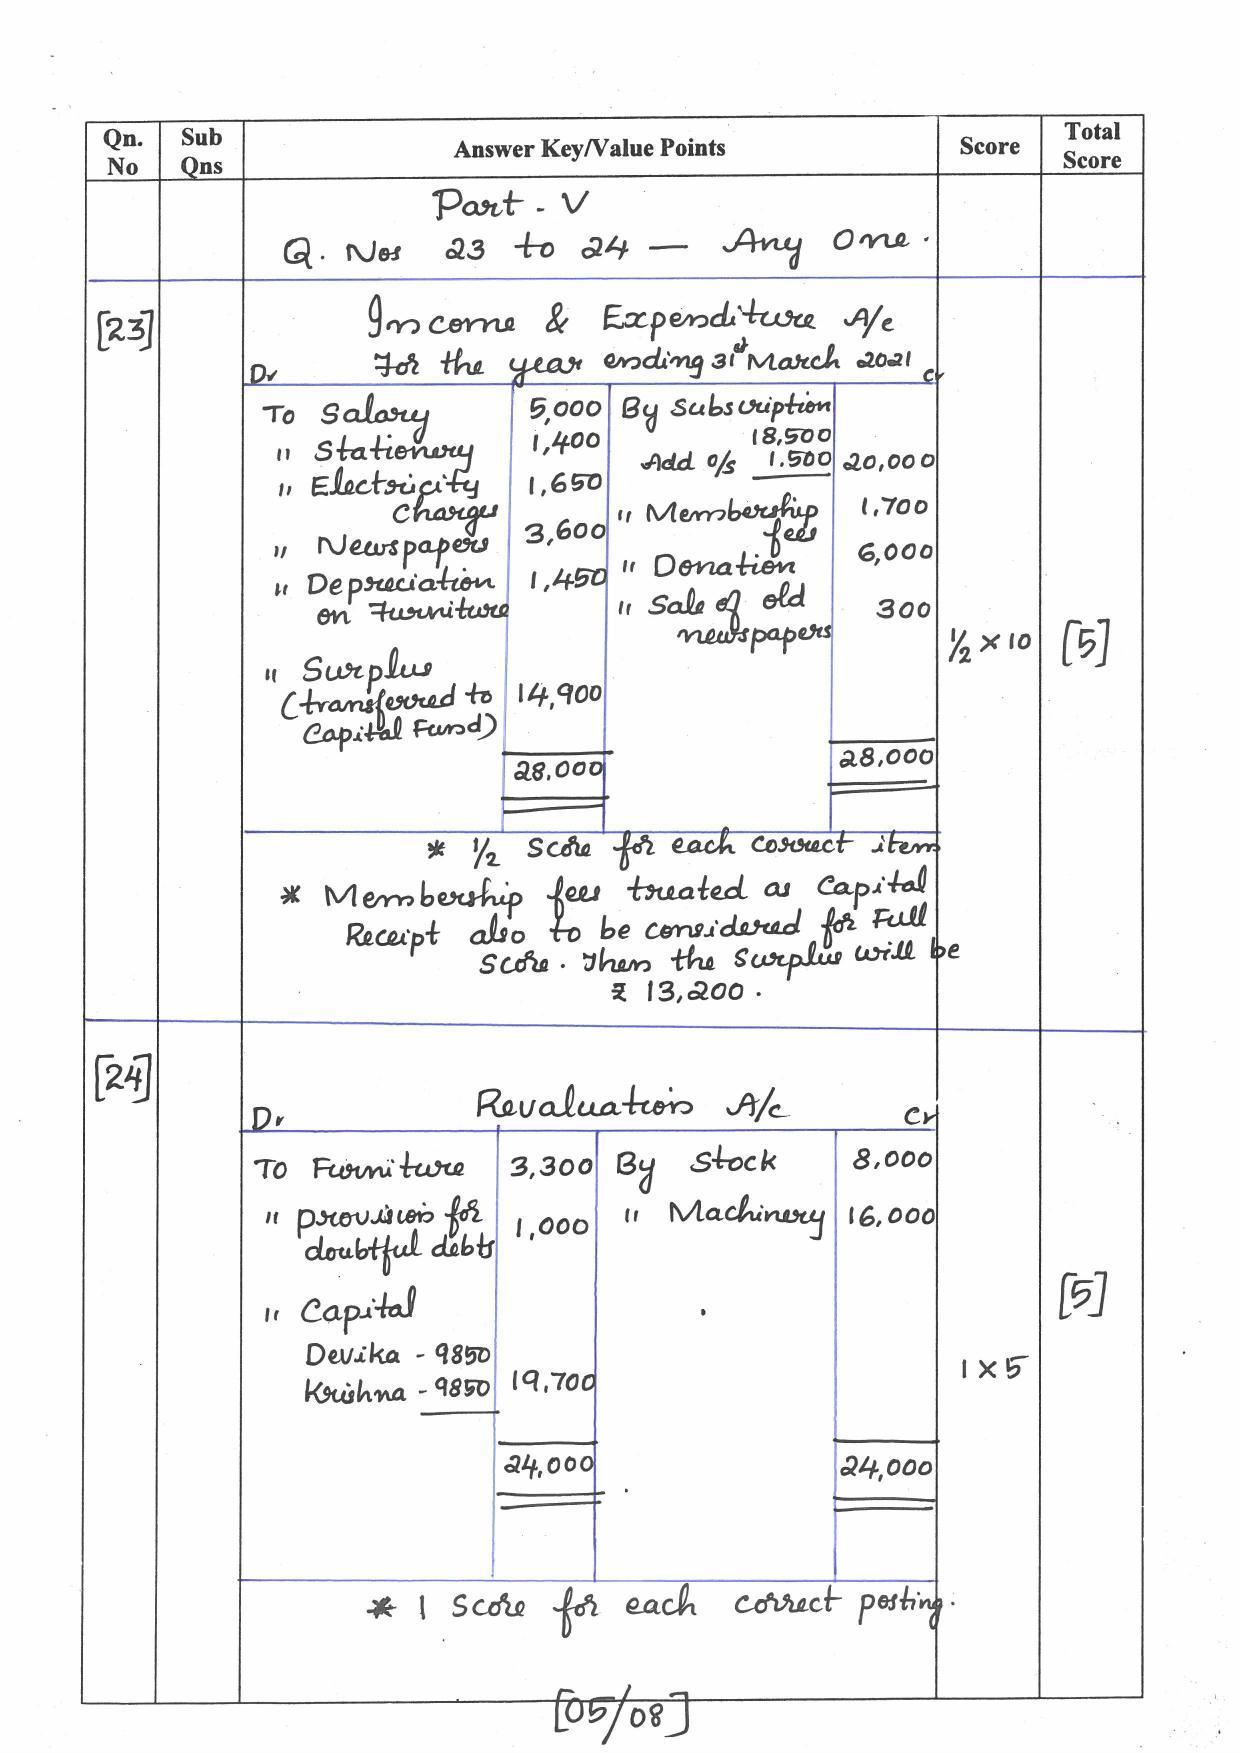 Qn. No Sub Qns Answer Key/Value Points Score Total Score
Part - V
Q. Nos 23 to 24 — Any One.
[23] Income & Expenditure A/c
Dr For the year ending 31st March 2021 Cr
To Salary 5,000 By Subscription
18,500
" Stationery 1,400 Add o/s 1.500 20,000
" Electricity Charges 1,650 " Membership fees 1,700
" Newspapers 3,600 " Donation 6,000
" Depreciation on Furniture 1,450 " Sale of old newspapers 300
½ × 10 [5]
" Surplus
(transferred to 14,900
Capital Fund)
28,000 28,000
* ½ Score for each correct item
* Membership fees treated as Capital
Receipt also to be considered for Full
Score. Then the Surplus will be
₹ 13,200.
[24]
Dr Revaluation A/c Cr
To Furniture 3,300 By Stock 8,000
" provision for doubtful debts 1,000 " Machinery 16,000
" Capital
[5]
Devika - 9850
Krishna - 9850 19,700
1 × 5
24,000 24,000
* 1 Score for each correct posting.
[05/08]